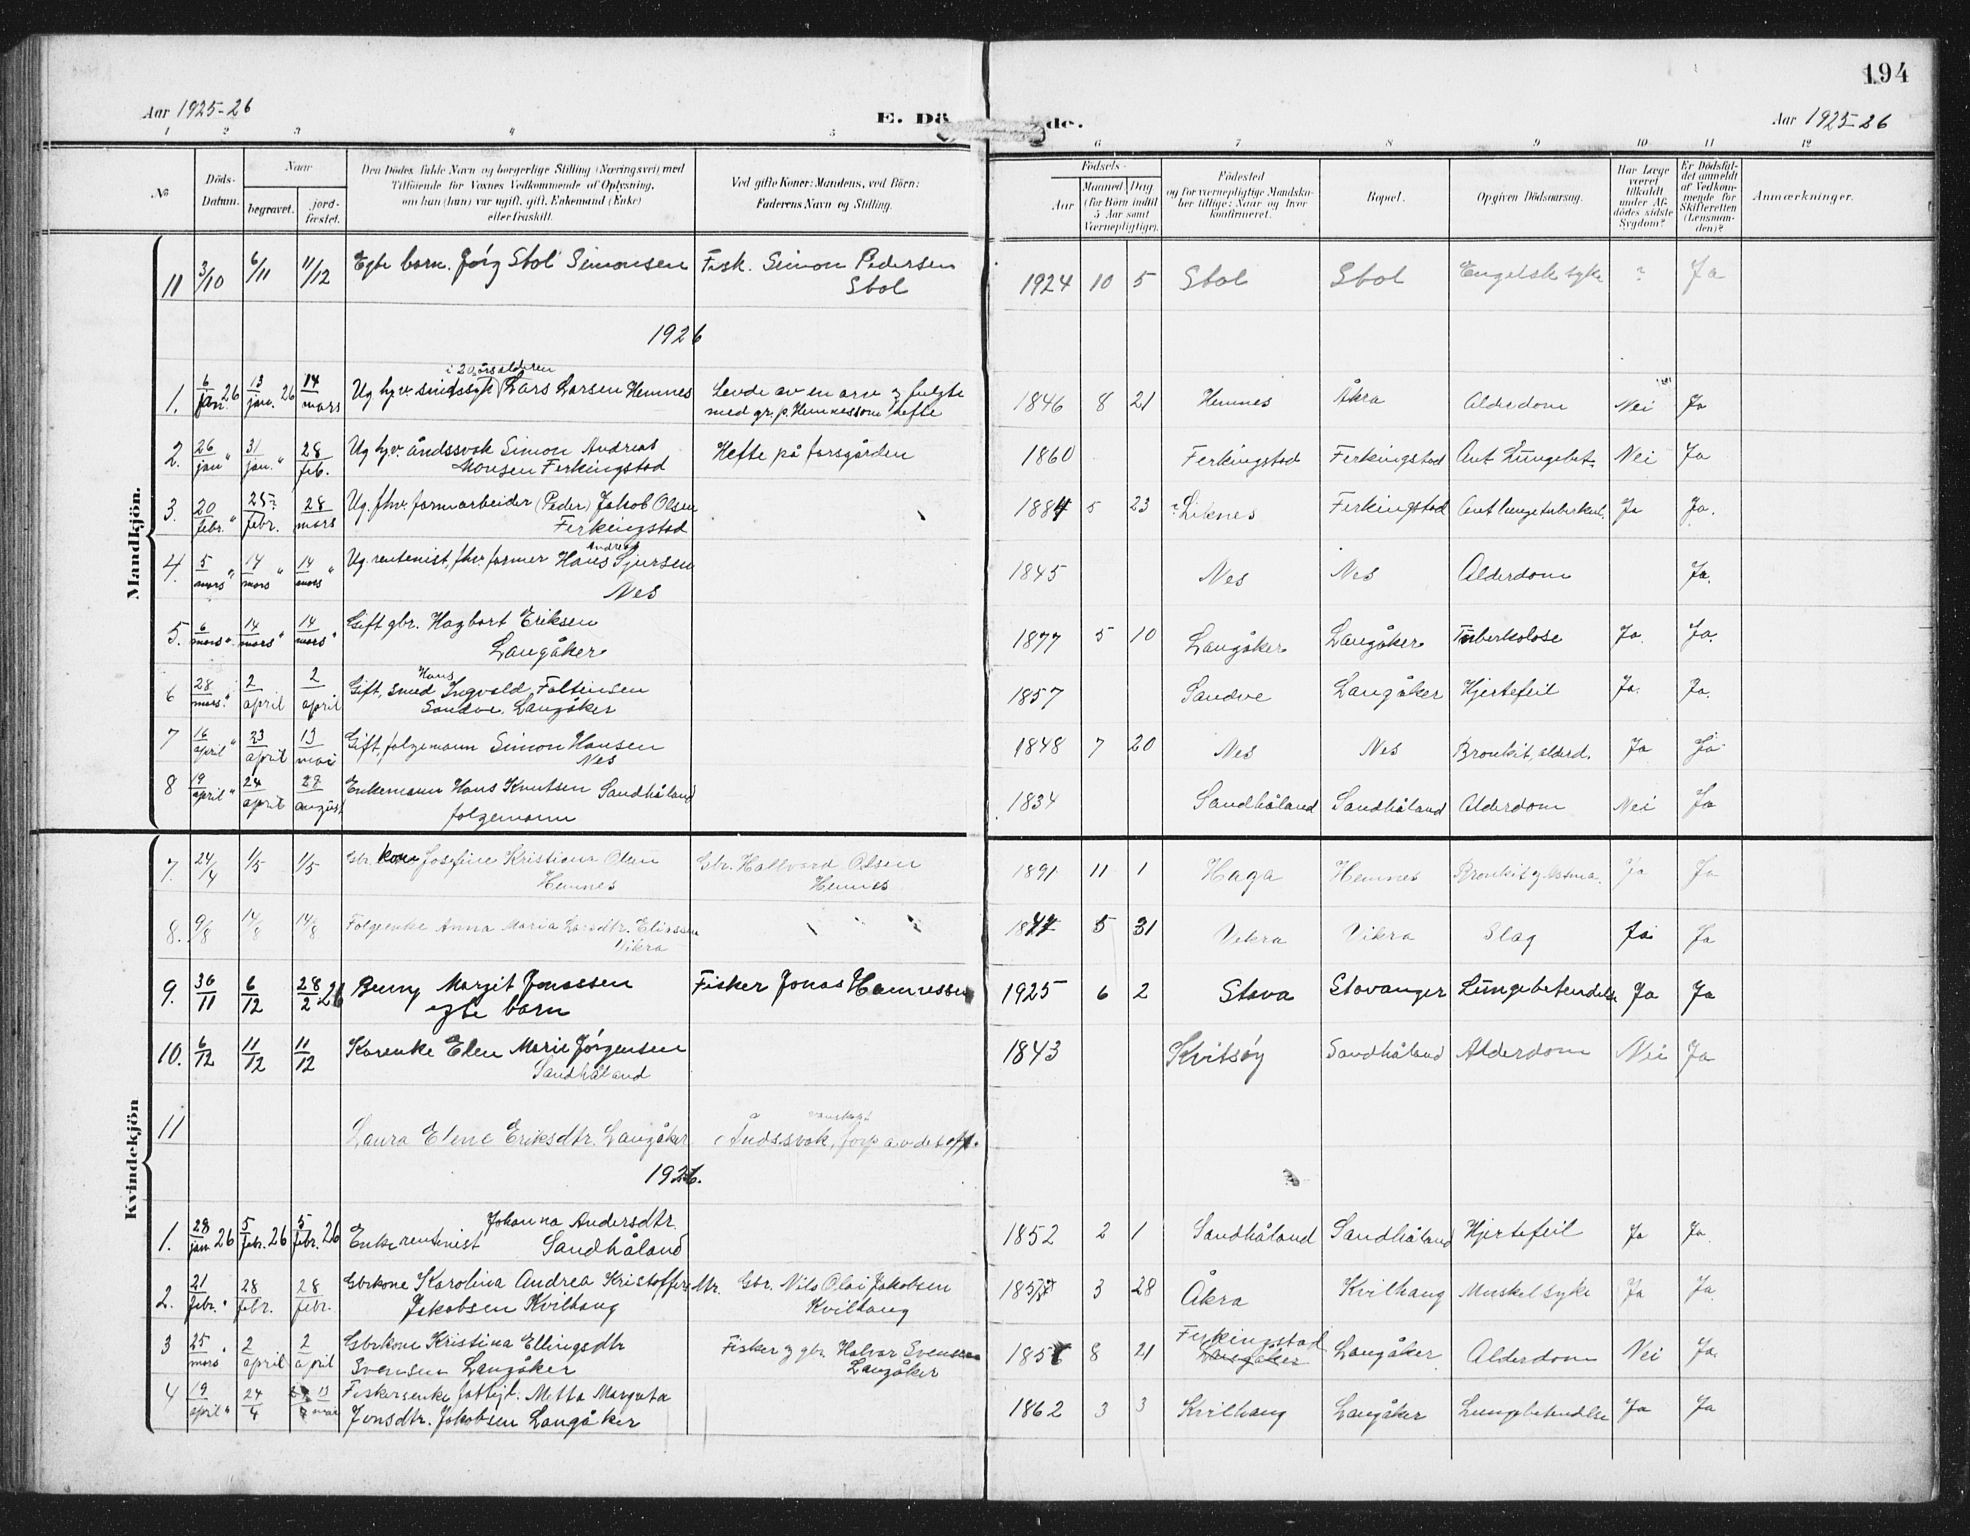 194
Aar 1925-26
E. Dö de.
Aar 1925-26
1 2 3 4 5 6 7 8 9 10 11 12
No
Döds-Datum.
Naar
begravet.
jord-fæstet.
Den Dödes fulde Navn og borgerlige Stilling (Næringsvei) med
Tilföiende for Voxnes Vedkommende af Oplysning,
om han (hun) var ugift, gift, Enkemand (Enke)
eller fraskilt.
Ved gifte Koner: Mandens, ved Börn:
Faderens Navn og Stilling.
Födsels-
Aar
Maaned Dag
(for Börn indtil
5 Aar samt
Værnepligtige).
Födested
og for værnepligtige Mandska-
ber tillige: Naar og hvor
konfirmeret.
Bopæl.
Opgiven Dödsaarsag.
Har Læge
været
tilkaldt
under Af-
dödes sidste
Sygdom?
Er Dödsfal-
det anmeldt
af Vedkom-
mende for
Skifteretten
(Lensman-
den)?
Anmærkninger.
Mandkjön.
11 3/10 6/11 11/12 Egte barn. Jørg Stol Simonsen Fisk. Simon Pedersen 1924 10 5 Stol Stol Engelsk syke ? Ja
Stol
1926
i 20 årsalderen
1. 6/jan. 26 13/jan. 26 14/mars Ug. hjv. sindssyk Lars Larsen Hemnes Levde av en arv 1846 8 21 Hemnes Åkra Alderdom Nei Ja
2. 26/jan " 31/jan. " 28/feb. Ug hjv. åndssvak Simon Andreas Hefte på farsgården 1860 Ferkingstad Ferkingstad Ant. Lungebet. Nei Ja
Monsen Ferkingstad
3. 20/febr. " 25?/febr. 28/mars Ug. fhv. farmarbeider (Peder) Jakob Olsen 1884 5 23 ?Liknes Ferkingstad Ant lungetuberkul. Ja Ja.
Ferkingstad
Andreas
4. 5/mars " 14/mars " 14/mars " Ug. rentenist, fhv. farmer Hans Sjursen 1845 Nes Nes Alderdom Ja.
Nes
5. 6/mars ". 14/mars " 14/mars " Gift gbr. Hagbart Eriksen 1877 5 10 Langåker Langåker Tuberkolose Ja. Ja.
Langåker
Hans
6 28/mars. " 2/april 2/april Gift, smed Ingvald Faltinsen 1857 Sandve Langåker Hjertefeil Ja. Ja.
Sandve. Langåker
7 16/april " 23/april 13/mai Gift, folgemann Simon Hansen 1848 7 20 Nes Nes Bronkit, alderd. Ja Ja
Nes
8 19/april " 24/april 28/august Enkemann Hans Knutsen Sandhåland 1834 Sandhåland Sandhåland Alderdom Nei Ja
folgemann
Kvindekjön
7. 24/4 1/5 1/5 Gbr. kone Josefine Kristiana Olsen Gbr. Hallvard Olsen 1891 11 1 Haga Hemnes Bronkit og Astma. Ja Ja
Hemnes Hemnes
8. 9/8 14/8 14/8 Folgeenke Anna Maria Larsdtr. Eliassen 1844 5 31 Vikra Vikra Slag Ja Ja
Vikra
9. 30/11 6/12 28/2 26 Benny Margit Jonassen Fisker Jonas 1925 6 2 Stava Stavanger Lungebetendelse Ja Ja
egte barn
10. 6/12 11/12 11/12 Kårenke Elen Marie Jørgensen 1843 Kvitsøy Sandhåland Alderdom Nei Ja
Sandhåland
vanskapt
11 Laura Elene Eriksdtr. Langåker Åndssvak, forp av det off.
1926.
Johanna Andersdtr.
1. 28/jan 26 5/febr. 26 5/febr. 26 Enke rentenist Sandhåland 1852 2 1 Sandhåland Sandhåland Hjertefeil Ja Ja.
2. 21/febr. " 28/febr. 28/febr. Gbrkone Karolina Andrea Kristoffersdtr. Gbr. Nils Olai Jakobsen 3 28 Åkra Kvilhaug Muskelsyke Ja Ja
Jakobsen Kvilhaug Kvilhaug
3 25/mars " 2/april 2/april Gbrkone Kristina Ellingsdtr Fisker og gbr. Halvor Svensen 8 21 Ferkingstad Langåker Langåker Alderdom Nei Ja.
Svensen Langåker Langåker
4 19/april " 24/4 13/mai Fiskerenke fattigl. Metta Margreta 1862 3 3 Kvilhaug Langåker Lungebetendlse Ja Ja
Jonsdtr. Jakobsen Langåker